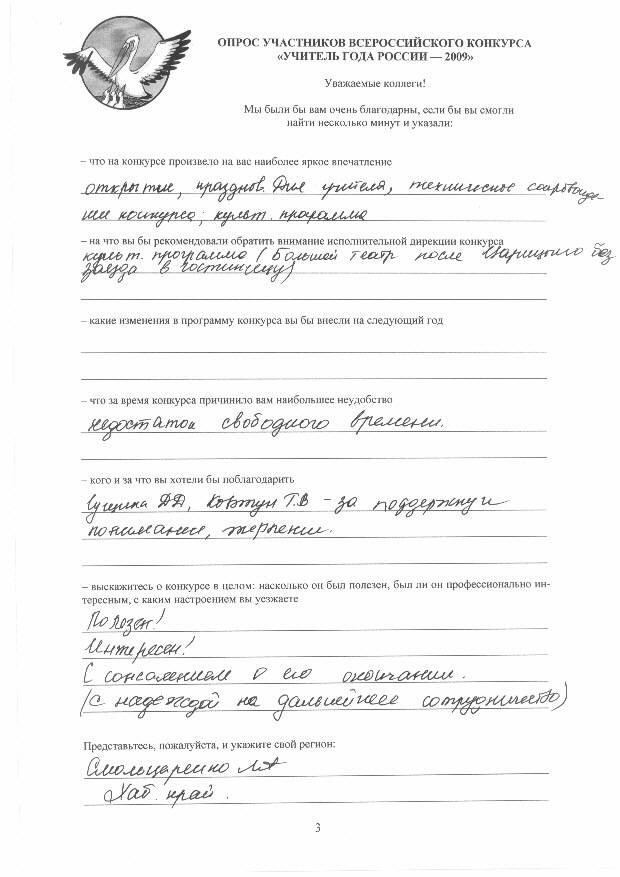 ОПРОС УЧАСТНИКОВ ВСЕРОССИЙСКОГО КОНКУРСА
«УЧИТЕЛЬ ГОДА РОССИИ — 2009»
Уважаемые коллеги!
Мы были бы вам очень благодарны, если бы вы смогли
найти несколько минут и указали:
– что на конкурсе произвело на вас наиболее яркое впечатление
открытие, празднов. Дня учителя, техническое сопровожде-
ние конкурса, культ. программа
– на что вы бы рекомендовали обратить внимание исполнительной дирекции конкурса
культ. программа (Большой театр после Царицыно без
заезда в гостиницу)
– какие изменения в программу конкурса вы бы внесли на следующий год
– что за время конкурса причинило вам наибольшее неудобство
недостаток свободного времени.
– кого и за что вы хотели бы поблагодарить
ДД, Ковтун Т.В – за поддержку и
понимание, терпение.
– выскажитесь о конкурсе в целом: насколько он был полезен, был ли он профессионально ин-
тересным, с каким настроением вы уезжаете
Полезен!
Интересен!
С сожалением о его окончании.
(с надеждой на дальнейшее сотрудничество)
Представьтесь, пожалуйста, и укажите свой регион:
Хаб. край.
3